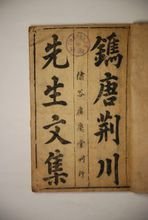 鐫唐荆川
先生文集